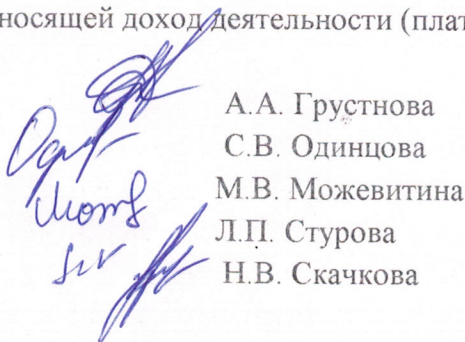 носящей доход деятельности (плат
А.А. Грустнова
С.В. Одинцова
М.В. Можевитина
Л.П. Стурова
Н.В. Скачкова